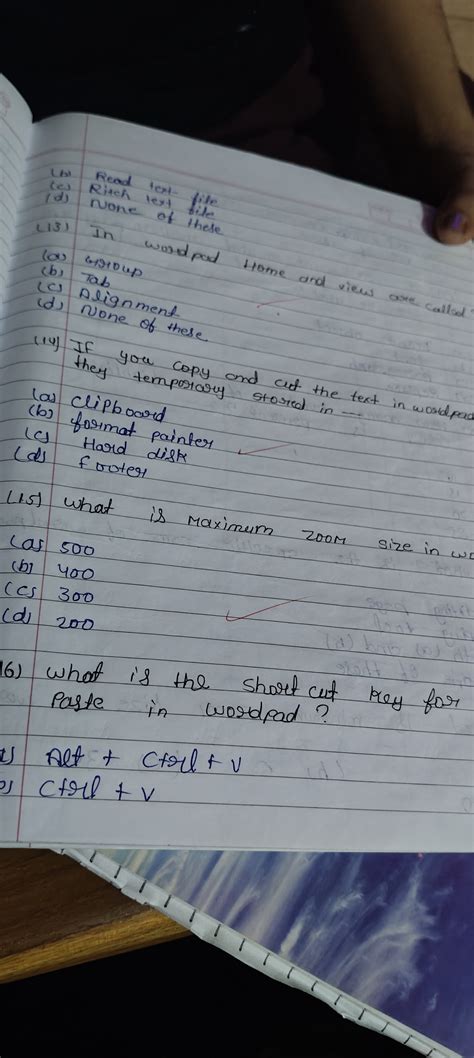 (b) Read text file
(c) Ritch text file
(d) None of these
(13) In wordpad Home and view are called
(a) Group
(b) Tab
(c) Alignment
(d) None of these
(14) If you copy and cut the text in wordpad
they temporary stored in —
(a) clipboard
(b) format painter
(c) Hard disk
(d) footer
(15) what is maximum zoom size in wo
(a) 500
(b) 400
(c) 300
(d) 200
16) what is the short cut key for
Paste in wordpad ?
Alt + Ctrl + v
Ctrl + v